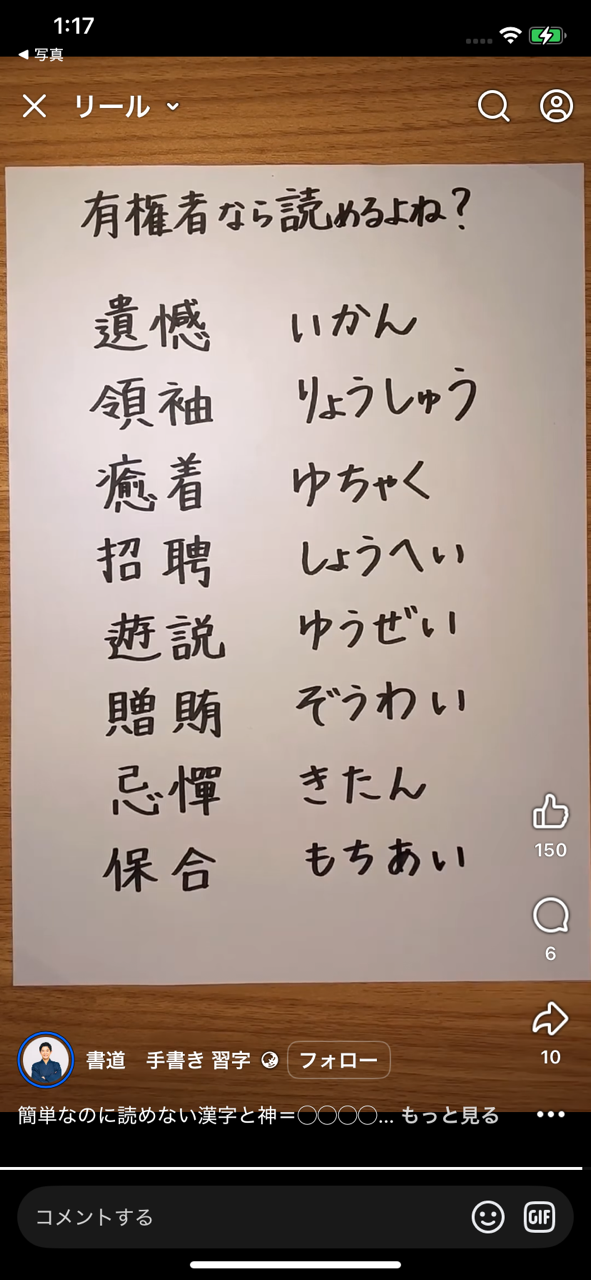 1:17
◀ 写真
リール
有権者なら読めるよね？
遺憾 いかん
領袖 りょうしゅう
癒着 ゆちゃく
招聘 しょうへい
遊説 ゆうぜい
贈賄 ぞうわい
忌憚 きたん
保合 もちあい
150
6
10
書道 手書き 習字
フォロー
簡単なのに読めない漢字と神＝◯◯◯◯... もっと見る
コメントする
GIF